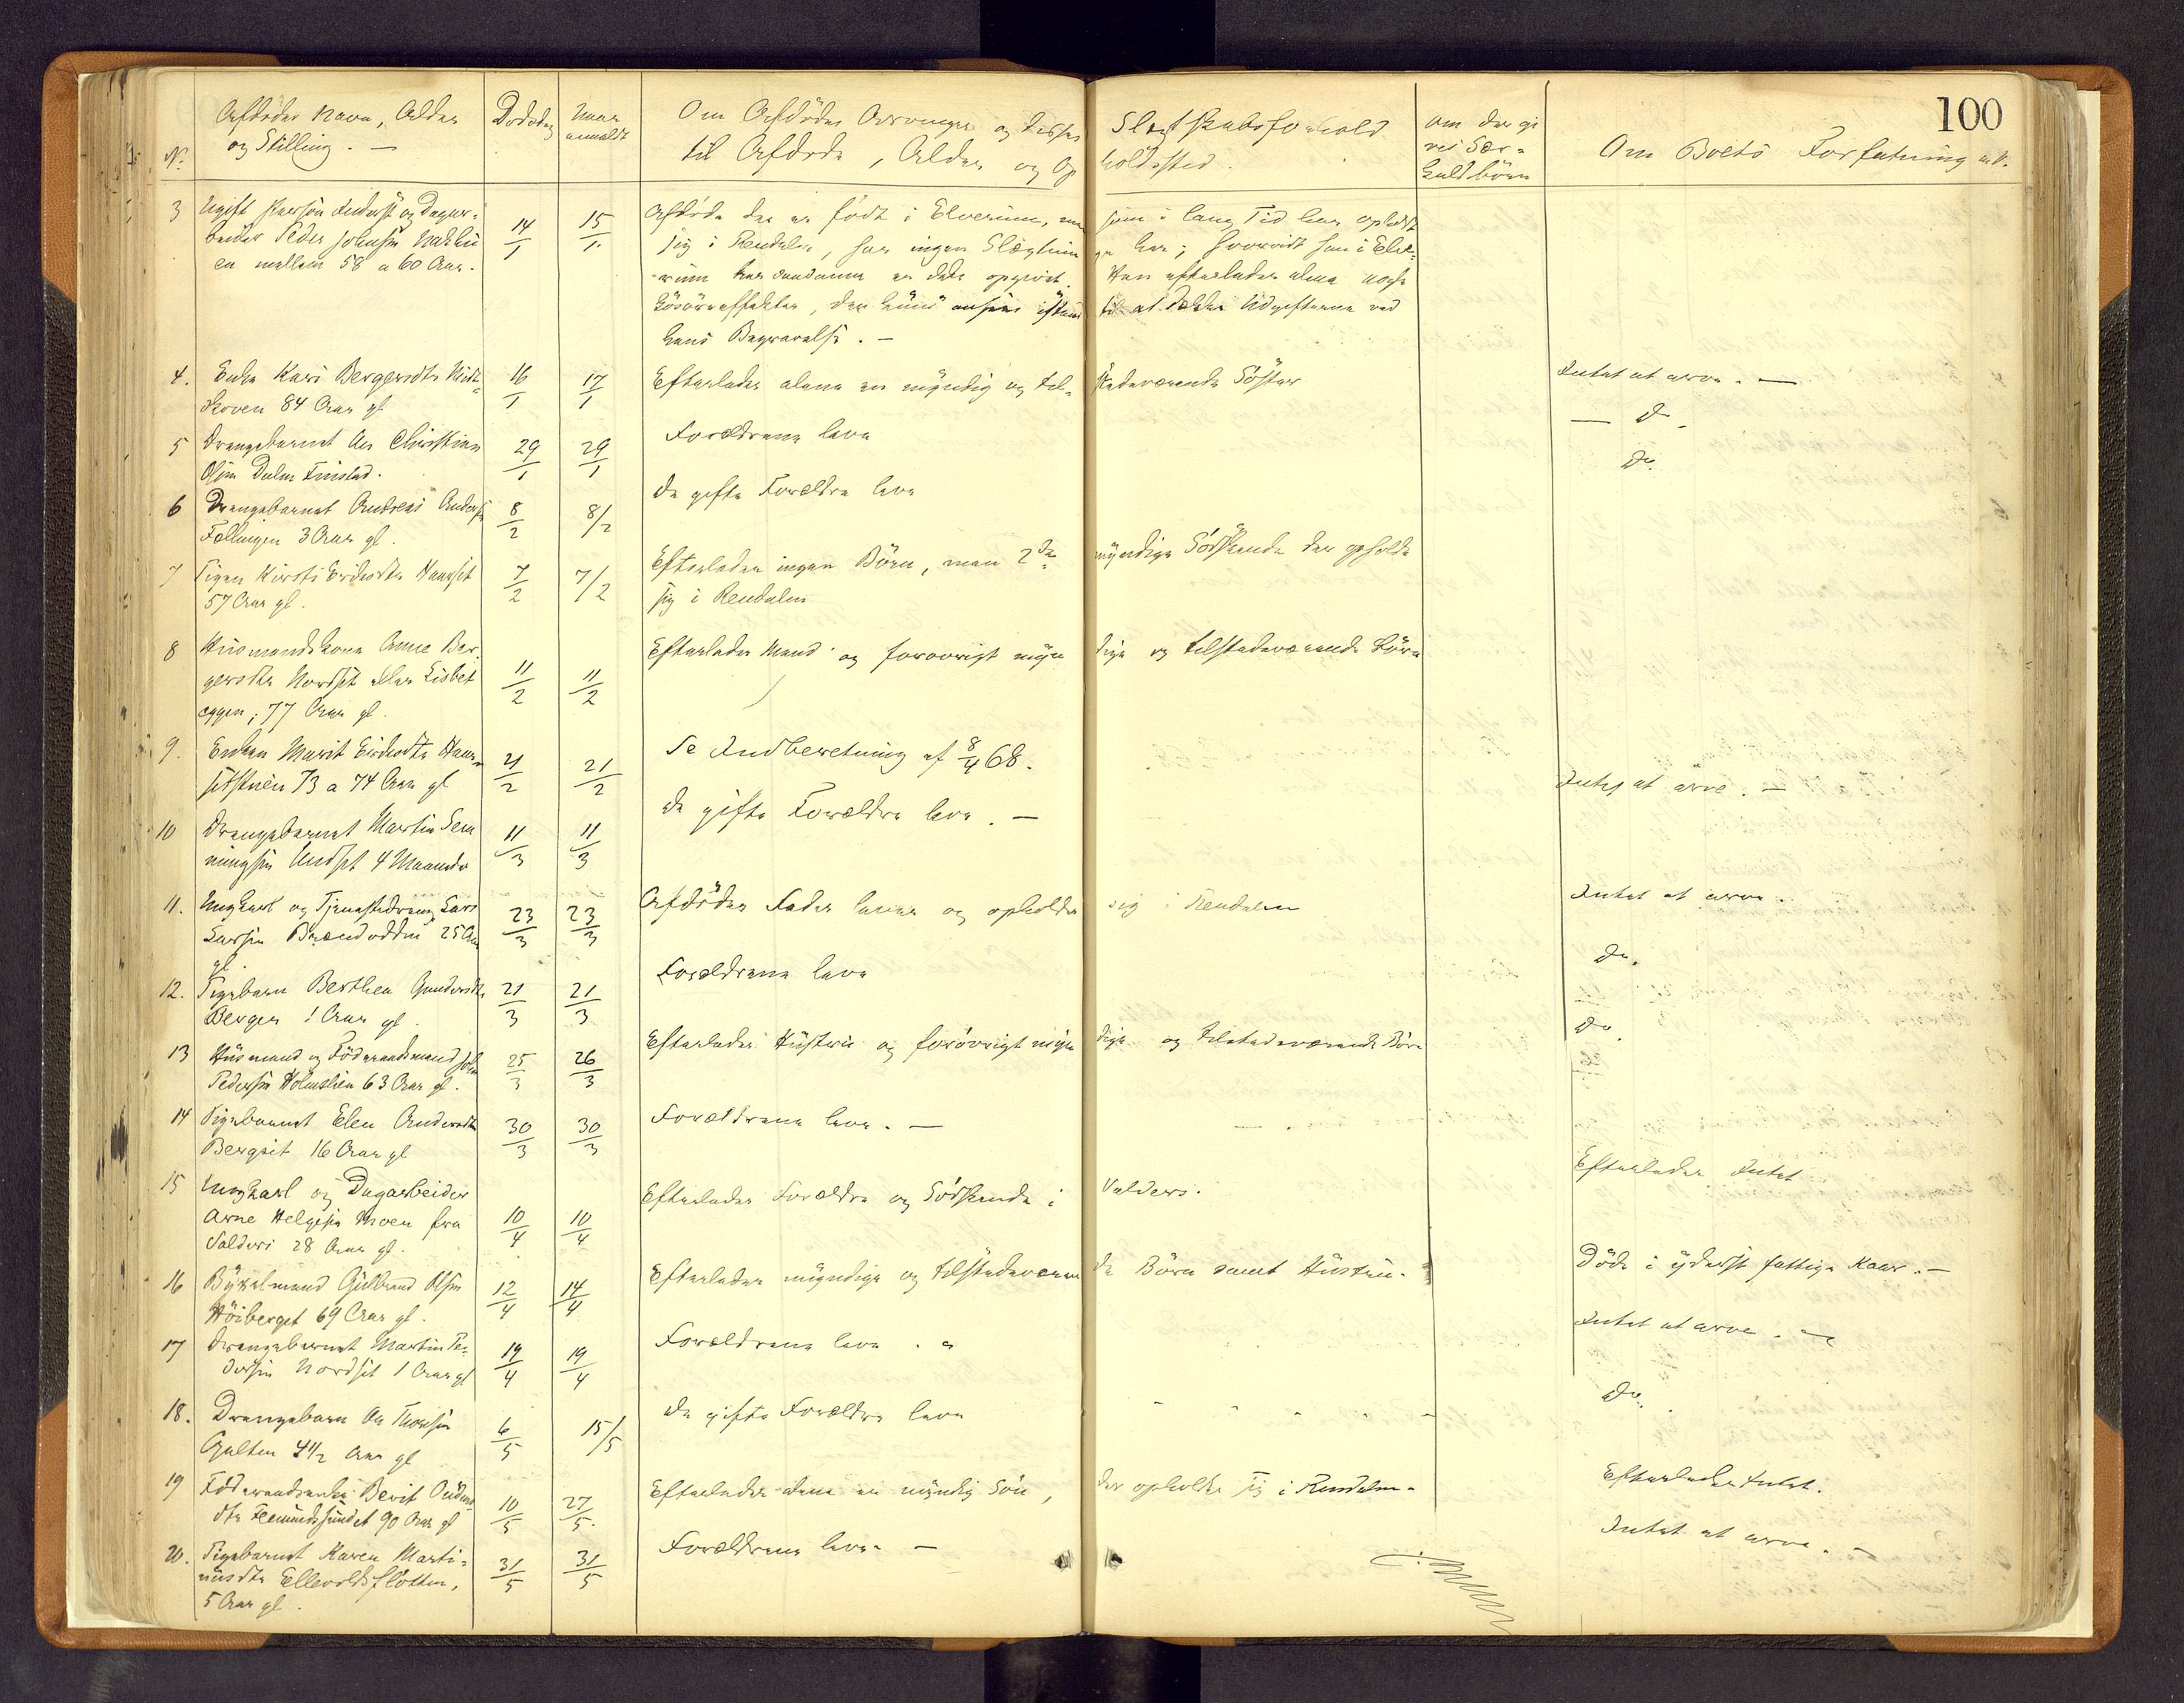 100
No. Afdödes Navn, Alder
og Stilling. —
Dödsdag
Naar
anmeldt
Om Afdödes Arvinger og disses Slægtskabsforhold
til Afdöde, Alder og Opholdssted.
Om der gi
ves Sær-
kuldbörn
Om Boets Forfatning m.V.
3 Ugift Person Inderst og Dagar-
beider Peder Johnsen
en mellem 58 a 60 Aar.
14/1
15/1
Afdöde der er födt i Elverum, men som i lang Tid har opholdt
sig i Rendalen, har ingen Slægtninge her; hvorvidt han i Elve-
rum har saadanne er ikke opgivet. Han efterlader alene nogle
til at dække Udgifterne ved
hans Begravelse. —
4. Enke Kari Bergersdtr
84 Aar gl
16/1
17/1
Efterlader alene en myndig og tilstedeværende Söster
Intet at arve. —
5 Drengebarnet Christian
Olsen Finstad.
29/1
29/1
Forældrene leve
— Do.
6 Drengebarnet Andreas Anders
Follingen 3 Aar gl.
8/2
8/2
De gifte Forældre leve
Do.
7 Pigen Kirsti Haarset
57 Aar gl.
7/2
7/2
Efterlader ingen Börn, men 2de myndige Södskende der opholde
sig i Rendalen
8 Husmandskone Anne Ber-
gersdtr Nordset eller Lisbet
æggen, 77 Aar gl.
11/2
11/2
Efterlader Mand og forøvrigt myndige og tilstedeværende Börn
9. Enken Marit Haar-
setstuen 73 a 74 Aar gl
21/2
21/2
Se Indberetning af 8/4 68.
10 Drengebarnet Martin Sem
mingsen Undset 4 Maaneder
11/3
11/3
De gifte Forældre leve. —
Intet at arve. —
11. Ungkarl og Tjenestedreng Lars
Larsen Brændodden 25 Aar
gl.
23/3
23/3
Afdödes Fader lever og opholder sig i Rendalen
Intet at arve.
12. Pigebarn Berthea Gundersdtr
Berger 1 Aar gl.
21/3
21/3
Forældrene leve
Do.
13 Husmand og Föderaadsmand John
Pedersen Holmslien 63 Aar gl.
25/3
26/3
Efterlader Hustru og forövrigt myndige og tilstedeværende Börn
Do.
14 Pigebarnet Elen Andersdtr
Bergset 16 Aar gl
30/3
30/3
Forældrene leve. —
15 Ungkarl og Dagarbeider
Arne Helgesen Moen fra
Valders 28 Aar gl.
10/4
10/4
Efterlader Forældre og Södskende i Valders.
Efterlader Intet
16 Bygselmand Gulbrand Olsen
Höiberget 69 Aar gl.
12/4
14/4
Efterlader myndige og tilstedeværende Börn samt Hustru.
Döde i yderst fattige Kaar. —
17 Drengebarnet Martin Pe-
dersen Nordset 1 Aar gl
19/4
19/4
Forældrene leve.
Intet at arve. —
18. Drengebarn Ole Thorsen
Galten 4 1/2 Aar gl
6/5
15/5
De gifte Forældre leve
Do.
19 Föderaadsenke Berit
dtr Femundsundet 90 Aar gl
10/5
27/5.
Efterlader alene en myndig Sön, der opholder sig i Rendalen.
Efterlader Intet.
20. Pigebarnet Karen Marti-
nusdtr Ellevoldsfløtten,
5 Aar gl.
31/5
31/5
Forældrene leve. —
Intet at arve. —